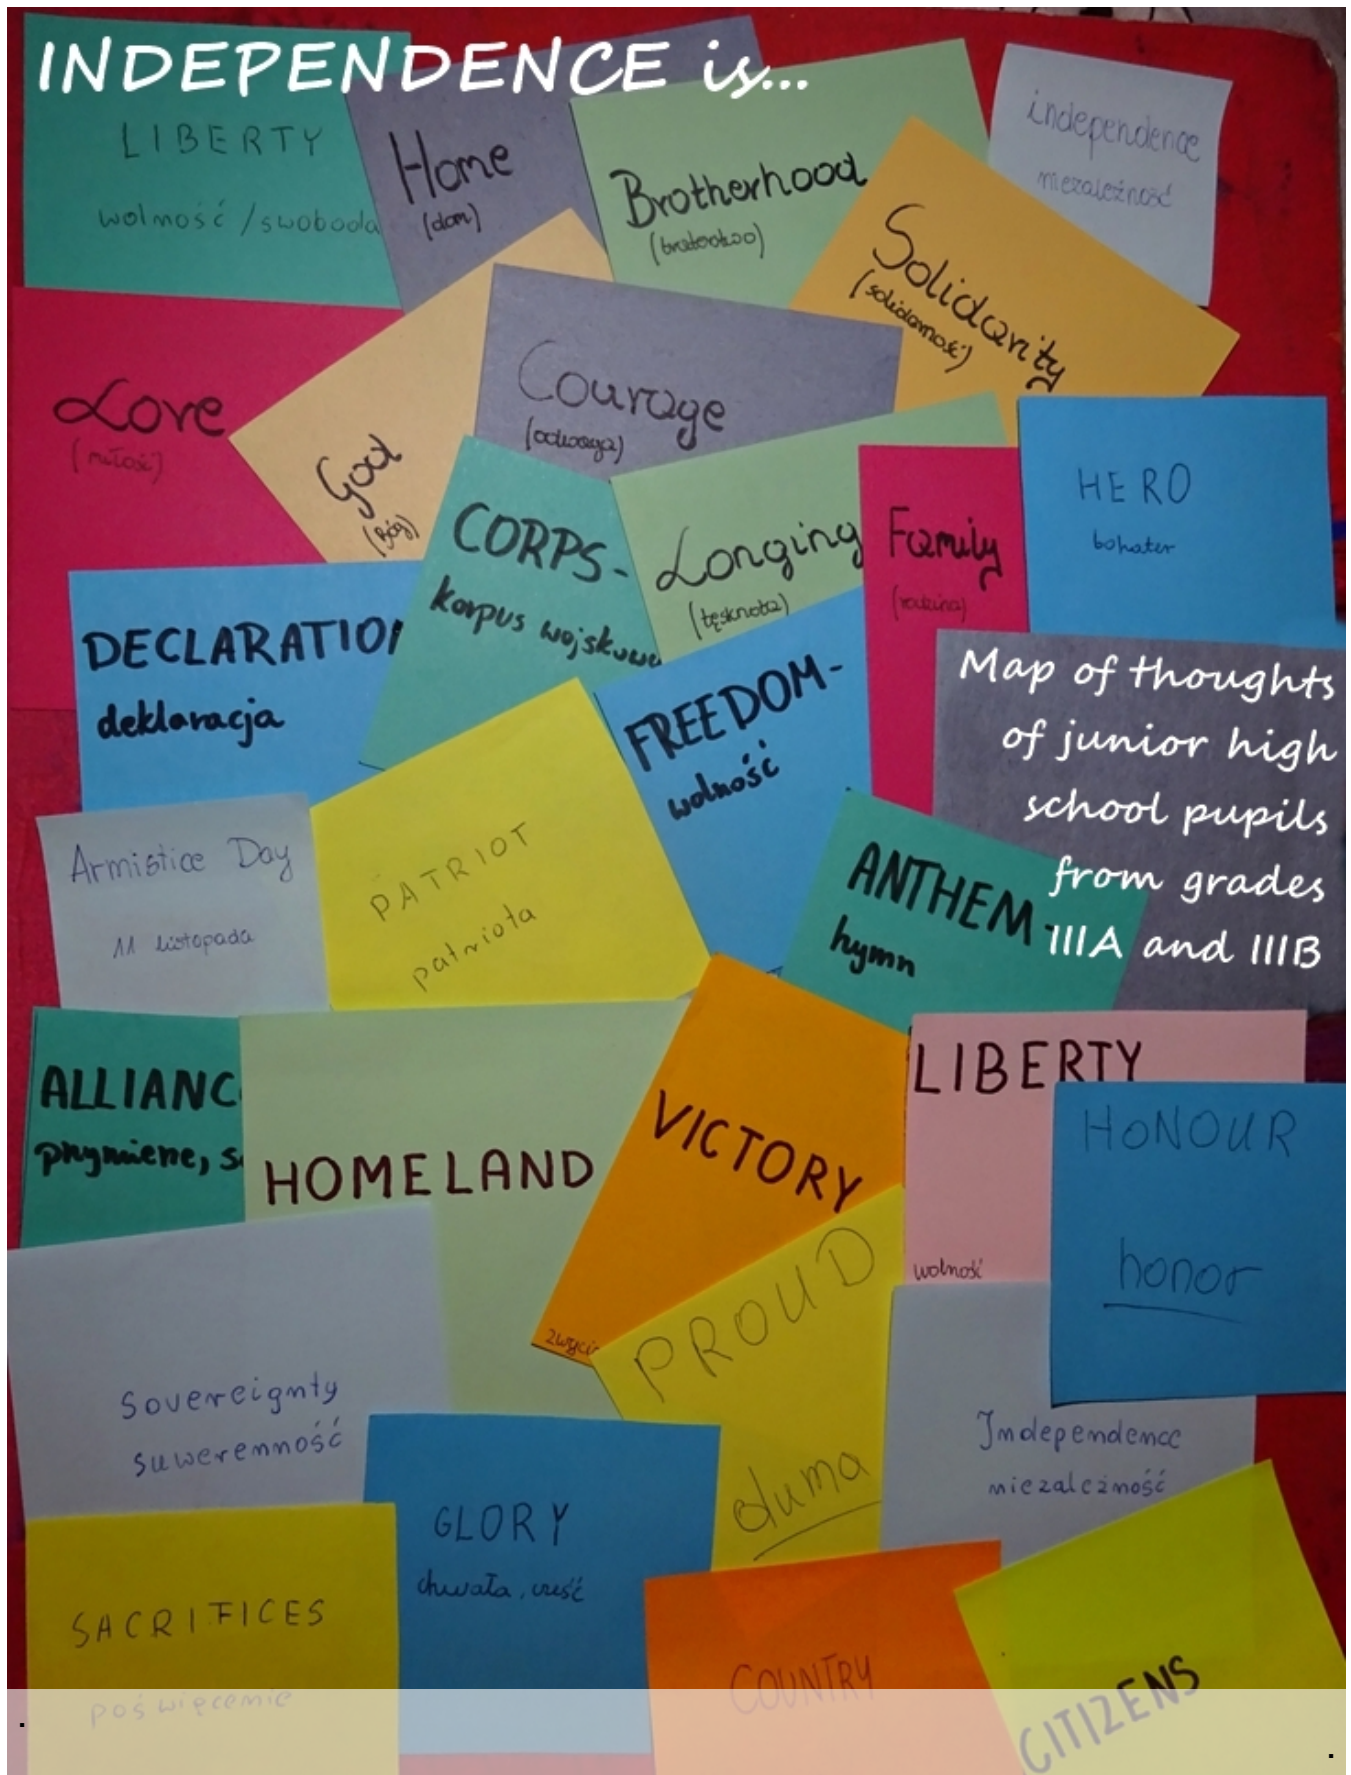 INDEPENDENCE is...
LIBERTY
wolność / swoboda
Home
(dom)
Brotherhood
(braterstwo)
independence
niezależność
Solidarity
(solidarność)
Love
(miłość)
God
(Bóg)
Courage
(odwaga)
CORPS-
korpus wojskowy
Longing
(tęsknota)
Family
(rodzina)
HERO
bohater
DECLARATION
deklaracja
FREEDOM-
wolność
Map of thoughts
of junior high
school pupils
from grades
IIIA and IIIB
Armistice Day
11 listopada
PATRIOT
patriota
ANTHEM-
hymn
ALLIANC
HOMELAND
VICTORY
zwycię
LIBERTY
wolność
HONOUR
honor
PROUD
duma
Sovereignty
suwerenność
Independence
niezależność
GLORY
chwała, cześć
SACRIFICES
poświęcenie
COUNTRY
CITIZENS